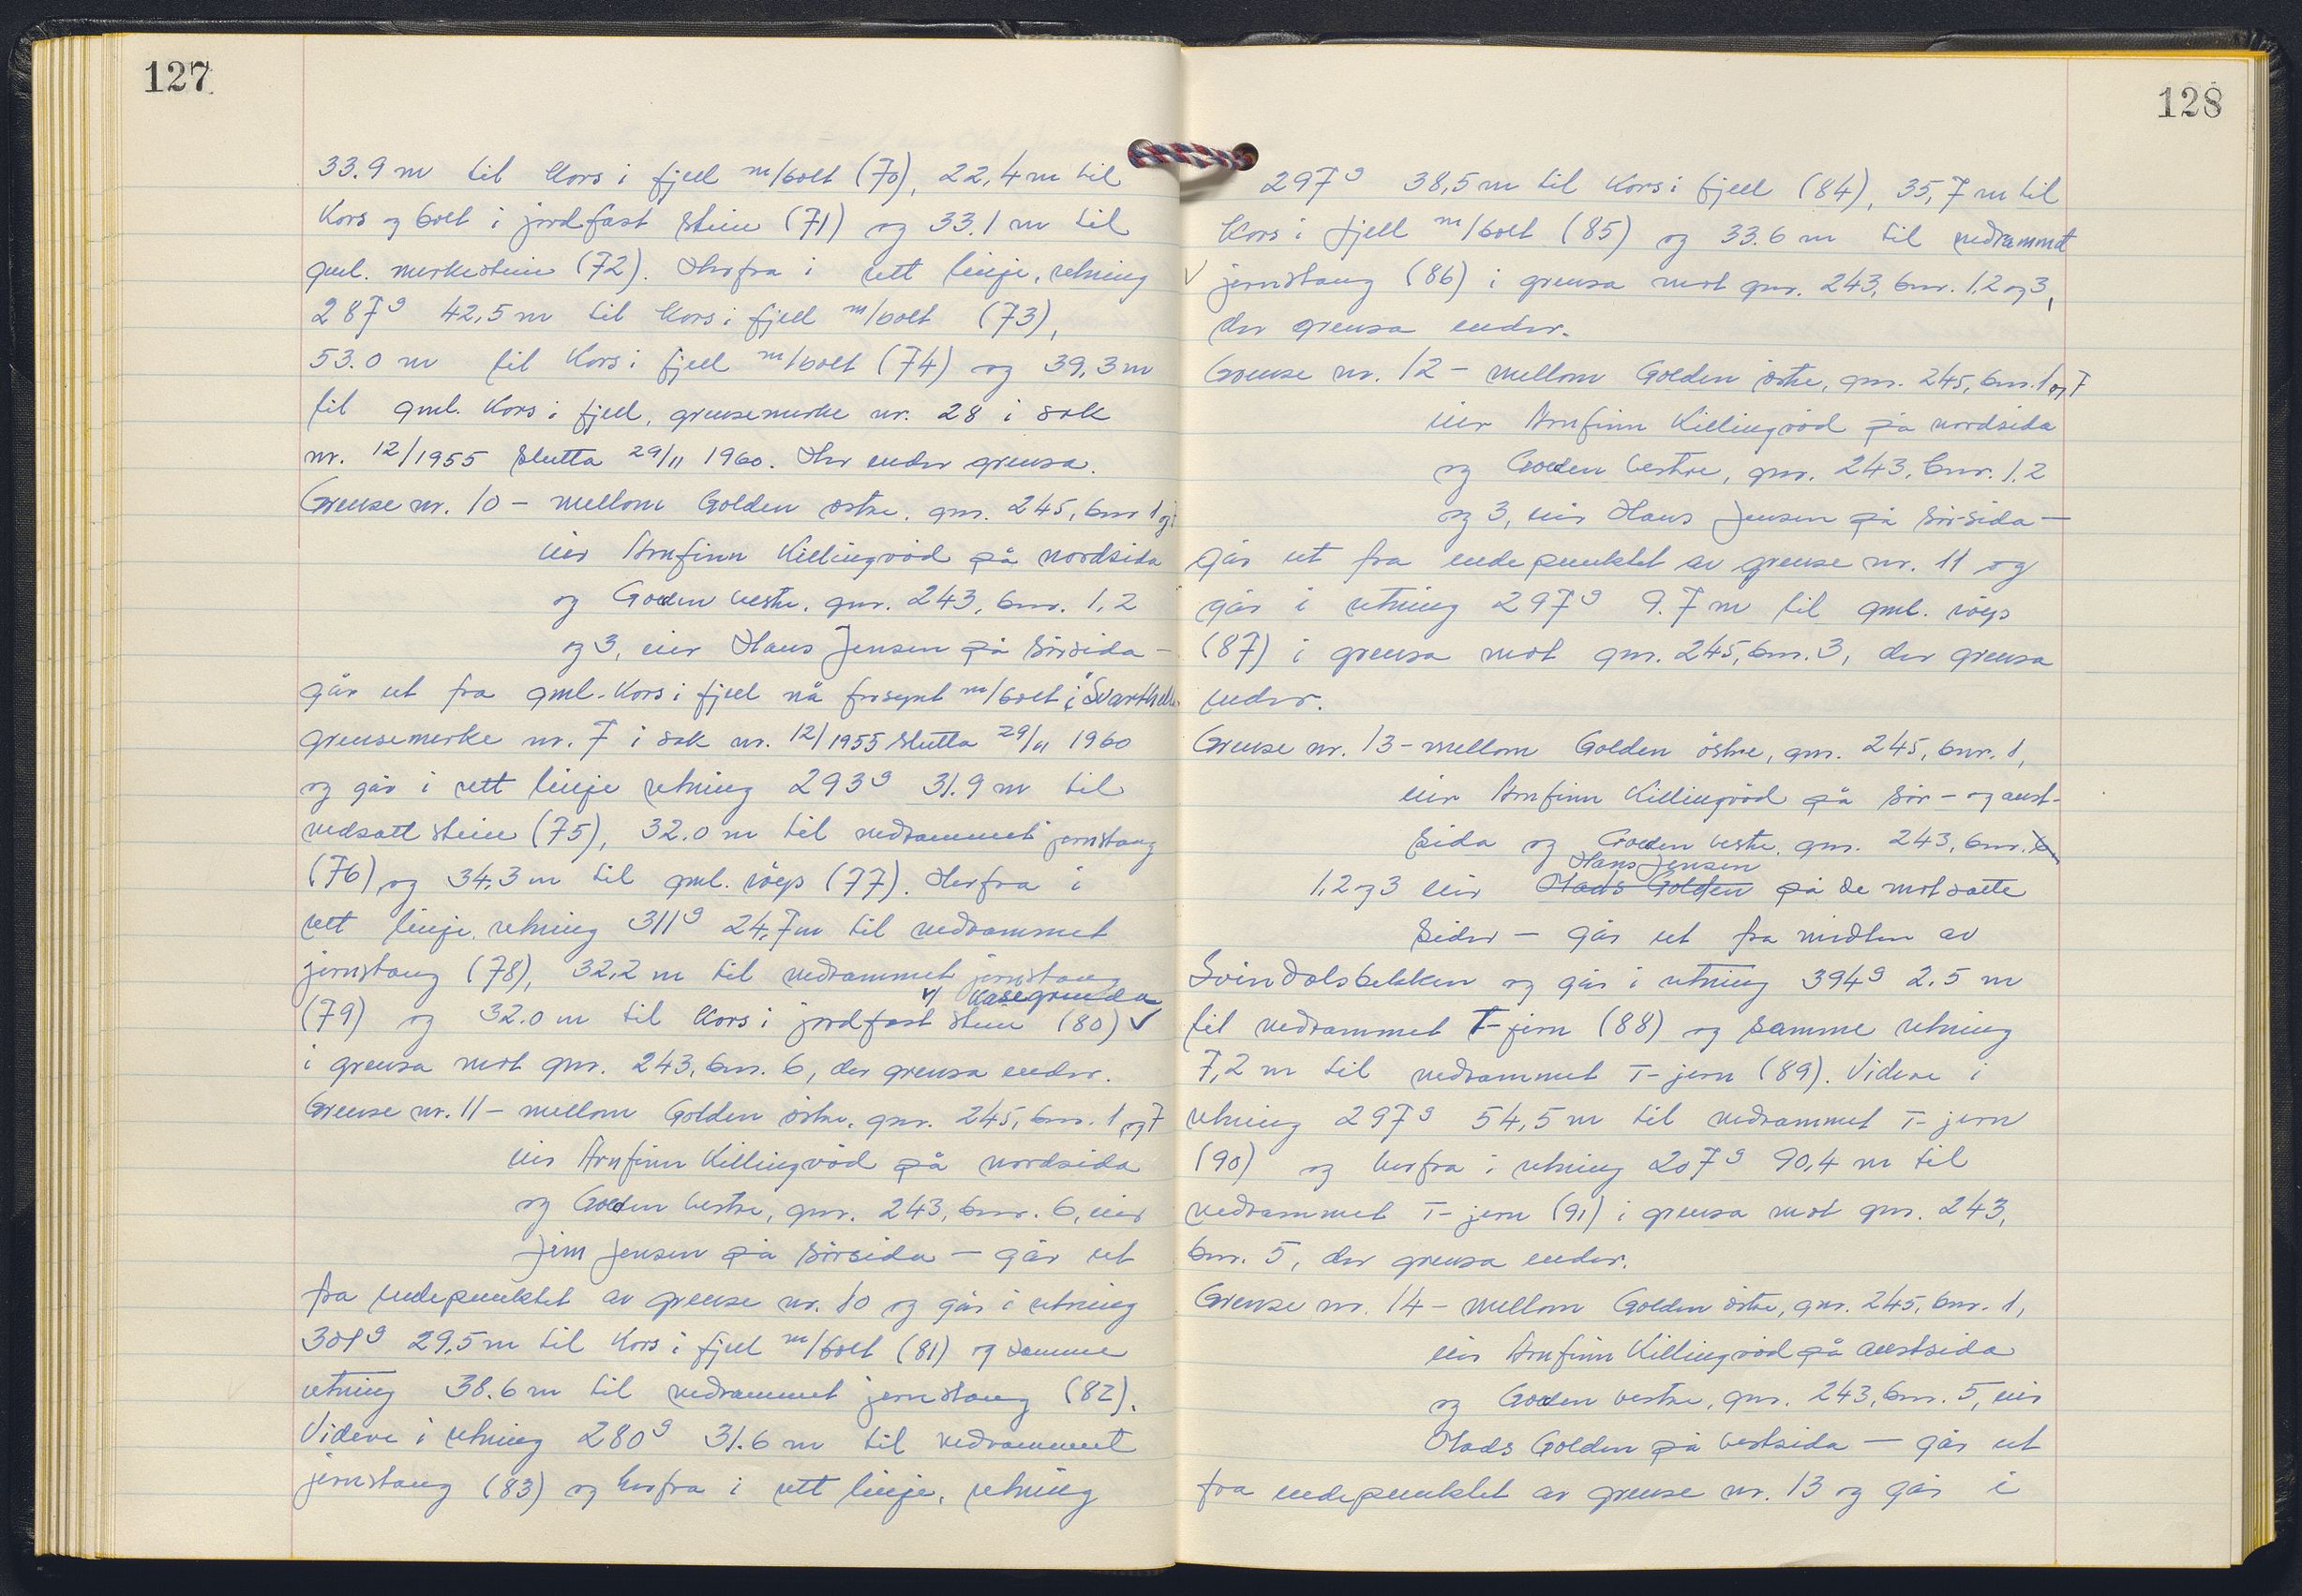 127
33.9 m til kors i fjell m/bolt (70), 22,4 m til
kors og bolt i jordfast stein (71) og 33.1 m til
gml. merkestein (72). Herfra i rett linje, retning
287g 42,5 m til kors i fjell m/bolt (73),
53.0 m til kors i fjell m/bolt (74) og 39,3 m
til gml. kors i fjell, grensemerke nr. 28 i sak
nr. 12/1955 slutta 29/11 1960. Her ender grensa.
Grense nr. 10 - mellom Golden østre, gnr. 245, bnr 1 og
eier Arnfinn Killingrød på nordsida
og Golden vestre, gnr. 243, bnr. 1, 2
og 3, eier Hans Jensen på sørsida -
går ut fra gml. kors i fjell nå forsynt m/bolt i "Svarthella
grensemerke nr. 7 i sak nr. 12/1955 slutta 29/11 1960
og går i rett linje retning 293g 31.9 m til
nedsatt stein (75), 32.0 m til nedrammet jernstang
(76) og 34,3 m til gml. røys (77). Herfra i
rett linje, retning 311g 24,7 m til nedrammet
jernstang (78), 32,2 m til nedrammet jernstang
v/ Kasegrunda
(79) og 32.0 m til kors i jordfast stein (80) ✓
i grensa mot gnr. 243, bnr. 6, der grensa ender.
Grense nr. 11 - mellom Golden østre, gnr. 245, bnr. 1 og 7
eier Arnfinn Killingrød på nordsida
og Golden vestre, gnr. 243, bnr. 6, eier
Jim Jensen på sørsida - går ut
fra endepunktet av grense nr. 10 og går i retning
301g 29,5 m til kors i fjell m/bolt (81) og samme
retning 38.6 m til nedrammet jernstang (82).
Videre i retning 280g 31.6 m til nedrammet
jernstang (83) og herfra i rett linje, retning
128
297g 38,5 m til kors i fjell (84), 35,7 m til
kors i fjell m/bolt (85) og 33.6 m til nedrammet
✓ jernstang (86) i grensa mot gnr. 243, bnr. 1,2 og 3,
der grensa ender.
Grense nr. 12 - mellom Golden østre, gnr. 245, bnr. 1 og 7
eier Arnfinn Killingrød på nordsida
og Golden vestre, gnr. 243, bnr. 1, 2
og 3, eier Hans Jensen på sørsida -
går ut fra endepunktet av grense nr. 11 og
går i retning 297g 9.7 m til gml. røys
(87) i grensa mot gnr. 245, bnr. 3, der grensa
ender.
Grense nr. 13 - mellom Golden østre, gnr. 245, bnr. 1,
eier Arnfinn Killingrød på sør- og aust-
sida og Golden vestre, gnr. 243, bnr.
Hans Jensen
1,2 og 3 eier Mads Golden på de motsatte
sider - går ut fra midten av
Svindalsbekken og går i retning 394g 2.5 m
til nedrammet T-jern (88) og samme retning
7,2 m til nedrammet T-jern (89). Videre i
retning 297g 54,5 m til nedrammet T-jern
(90) og herfra i retning 207g 90,4 m til
nedrammet T-jern (91) i grensa mot gnr. 243,
bnr. 5, der grensa ender.
Grense nr. 14 - mellom Golden østre, gnr. 245, bnr. 1,
eier Arnfinn Killingrød på austsida
og Golden vestre, gnr. 243, bnr. 5, eier
Mads Golden på vestsida - går ut
fra endepunktet av grense nr. 13 og går i